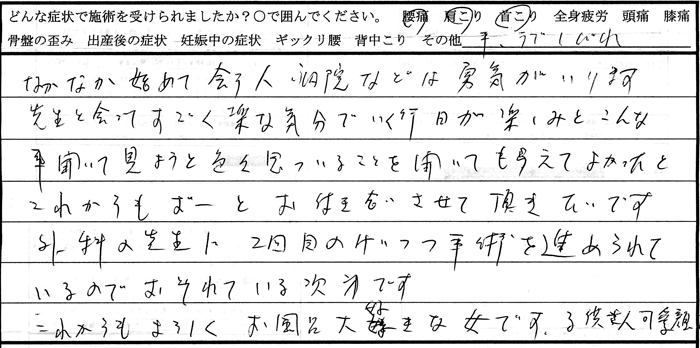 どんな症状で施術を受けられましたか?〇で囲んでください。 腰痛 肩こり 首こり 全身疲労 頭痛 膝痛
骨盤の歪み 出産後の症状 妊娠中の症状 ギックリ腰 背中こり その他 手、うでしびれ
なかなか始めて会う人 病院などは勇気がいります
先生と会ってすごく楽な気分でいく行日が楽しみとこんな
事聞いて見ようと色々思っていることを聞いてもらえてよかったと
これからもずーっとお付き合いさせて頂きたいです
外科の先生に2回目のけっつ手術を進められて
いるのでおそれている次第です
これからもよろしくお風呂大好きな女です。